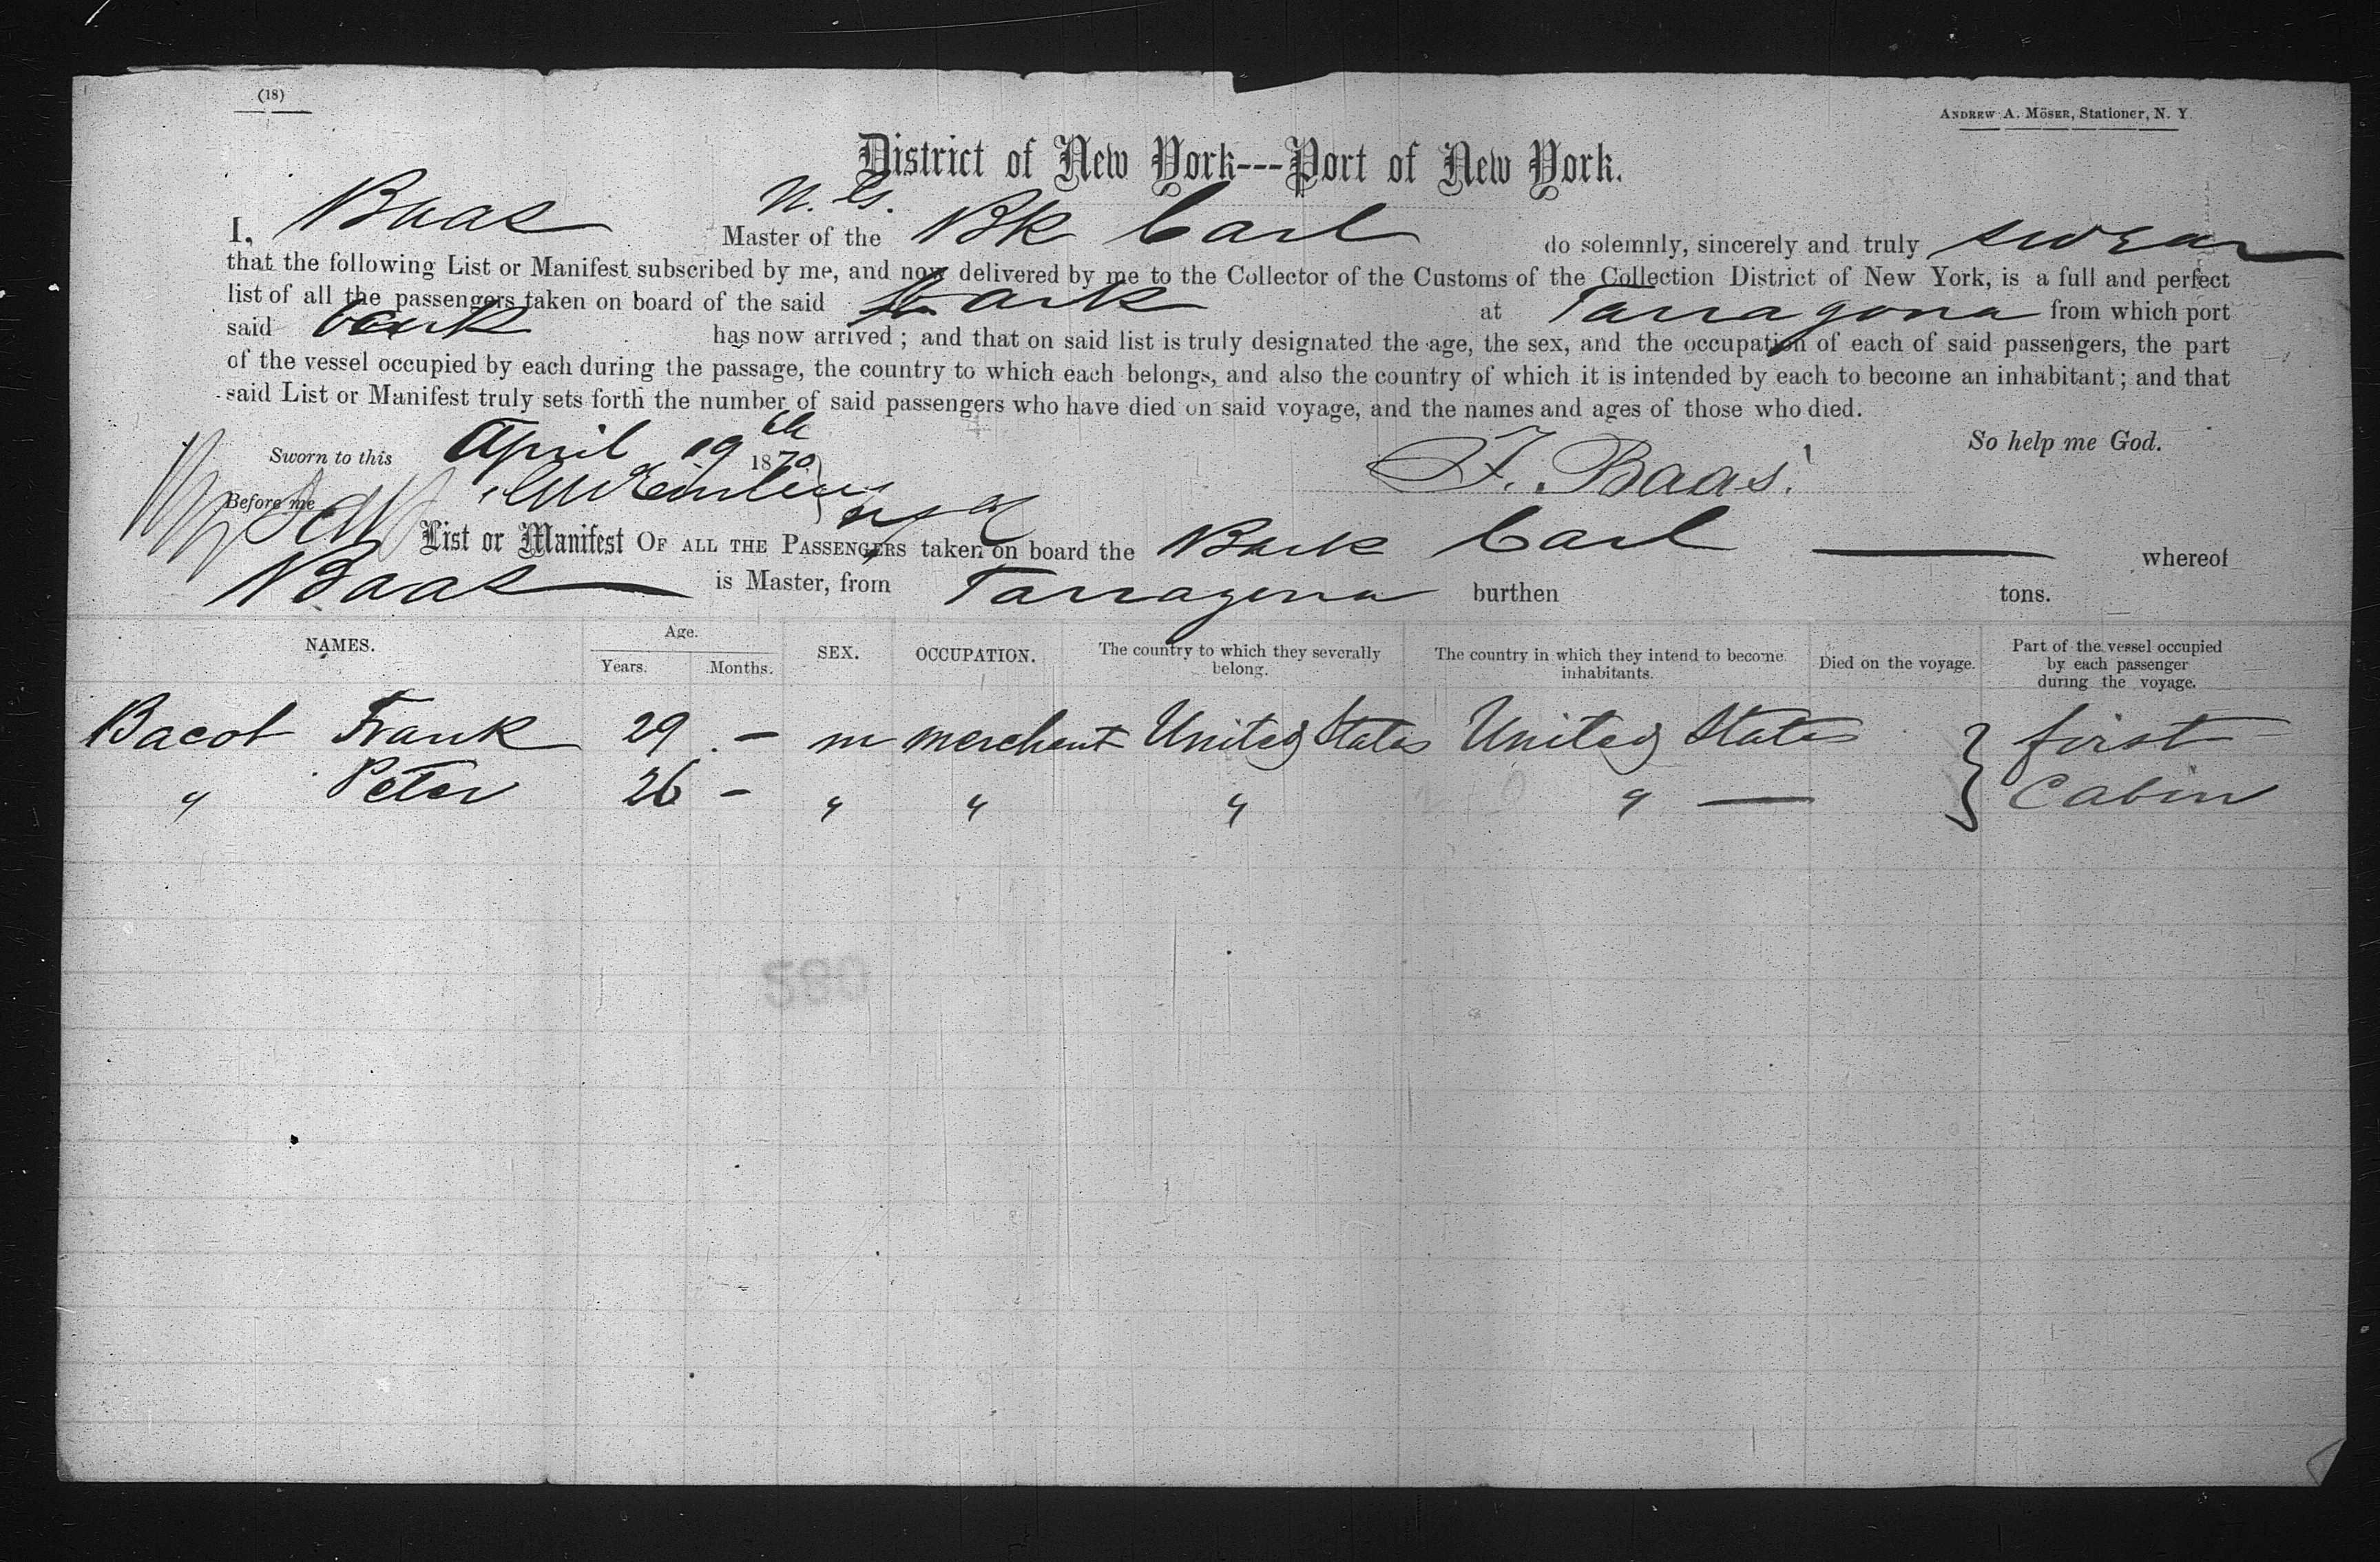 (18)
Andrew A. Möser, Stationer, N. Y.
District of New York---Port of New York.
I, Baas Master of the N. G. Bk Carl do solemnly, sincerely and truly swear
that the following List or Manifest subscribed by me, and now delivered by me to the Collector of the Customs of the Collection District of New York, is a full and perfect
list of all the passengers taken on board of the said bark at Tarragona from which port
said bark has now arrived; and that on said list is truly designated the age, the sex, and the occupation of each of said passengers, the part
of the vessel occupied by each during the passage, the country to which each belongs, and also the country of which it is intended by each to become an inhabitant; and that
said List or Manifest truly sets forth the number of said passengers who have died on said voyage, and the names and ages of those who died.
So help me God.
Sworn to this April 19th 1870
F. Baas
Before me
List or Manifest OF ALL THE PASSENGERS taken on board the Bark Carl whereof
Baas is Master, from Tarragona burthen tons.
NAMES. Age. Years. Months. SEX. OCCUPATION. The country to which they severally belong. The country in which they intend to become inhabitants. Died on the voyage. Part of the vessel occupied by each passenger during the voyage.
Bacot Frank 29 - m merchant United States United States } first
" Peter 26 - " " " " — } Cabin
580